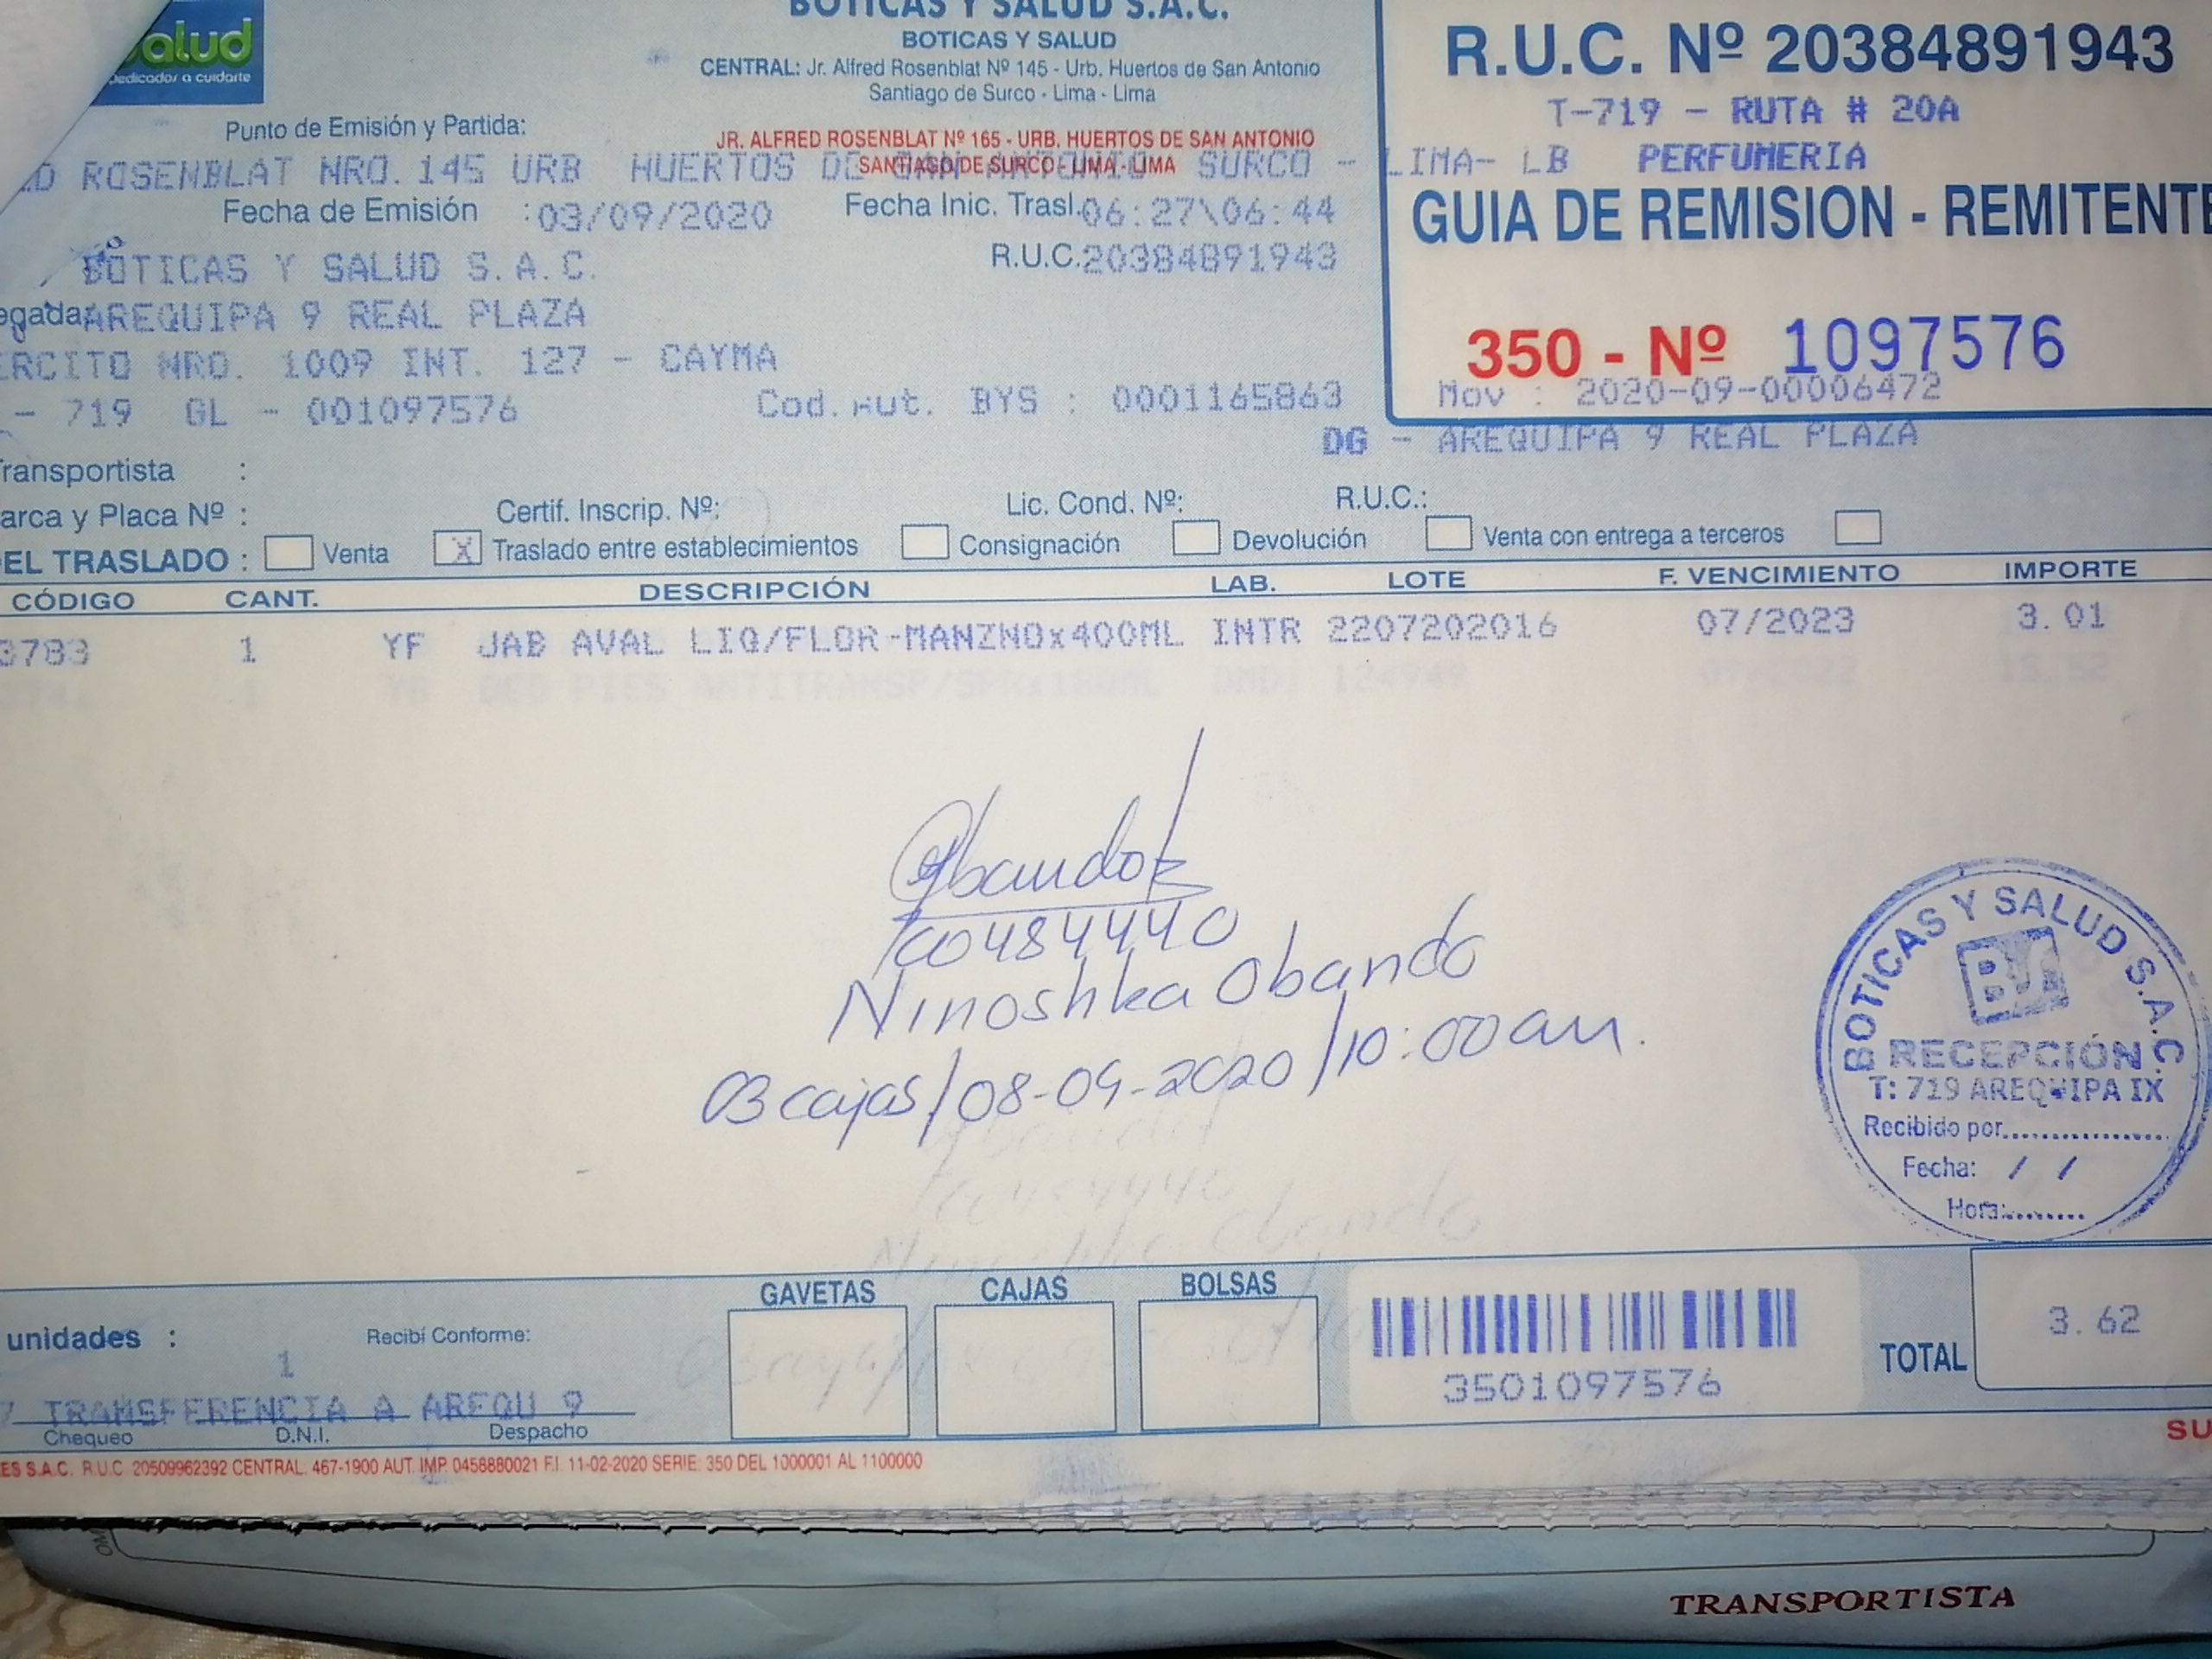 alud
Dedicados a cuidarte
BOTICAS Y SALUD S.A.C.
BOTICAS Y SALUD
CENTRAL: Jr. Alfred Rosenblat Nº 145 - Urb. Huertos de San Antonio
Santiago de Surco - Lima - Lima
JR. ALFRED ROSENBLAT Nº 165 - URB. HUERTOS DE SAN ANTONIO
SANTIAGO DE SURCO - LIMA - LIMA
R.U.C. Nº 20384891943
T-719 - RUTA # 20A
PERFUMERIA
GUIA DE REMISION - REMITENTE
350 - Nº 1097576
Mov : 2020-09-00006472
DG - AREQUIPA 9 REAL PLAZA
Punto de Emisión y Partida:
ROSENBLAT NRO. 145 URB HUERTOS DE SAN ANTONIO SURCO - LIMA- LB
Fecha de Emisión : 03/09/2020 Fecha Inic. Trasl. 06:27\06:44
BOTICAS Y SALUD S.A.C. R.U.C. 20384891943
egada AREQUIPA 9 REAL PLAZA
ERCITO NRO. 1009 INT. 127 - CAYMA
- 719 GL - 001097576 Cod. Aut. BYS : 0001165863
Transportista :
arca y Placa Nº : Certif. Inscrip. Nº: Lic. Cond. Nº: R.U.C.:
EL TRASLADO : Venta X Traslado entre establecimientos Consignación Devolución Venta con entrega a terceros
CÓDIGO CANT. DESCRIPCIÓN LAB. LOTE F. VENCIMIENTO IMPORTE
3783 1 YF JAB AVAL LIQ/FLOR-MANZNOx400ML INTR 2207202016 07/2023 3.01
Obando
70484440
Ninoshka Obando
03 cajas / 08-09-2020 / 10:00 am.
BOTICAS Y SALUD S.A.C.
RECEPCIÓN
T: 719 AREQUIPA IX
Recibido por..................
Fecha: / /
Hora:.........
unidades : 1 Recibí Conforme: GAVETAS CAJAS BOLSAS
3501097576
TOTAL 3.62
7 TRANSFERENCIA A AREQU 9
Chequeo D.N.I. Despacho
SU
ES S.A.C. R.U.C 20509962392 CENTRAL. 467-1900 AUT. IMP. 0458880021 F.I. 11-02-2020 SERIE: 350 DEL 1000001 AL 1100000
TRANSPORTISTA